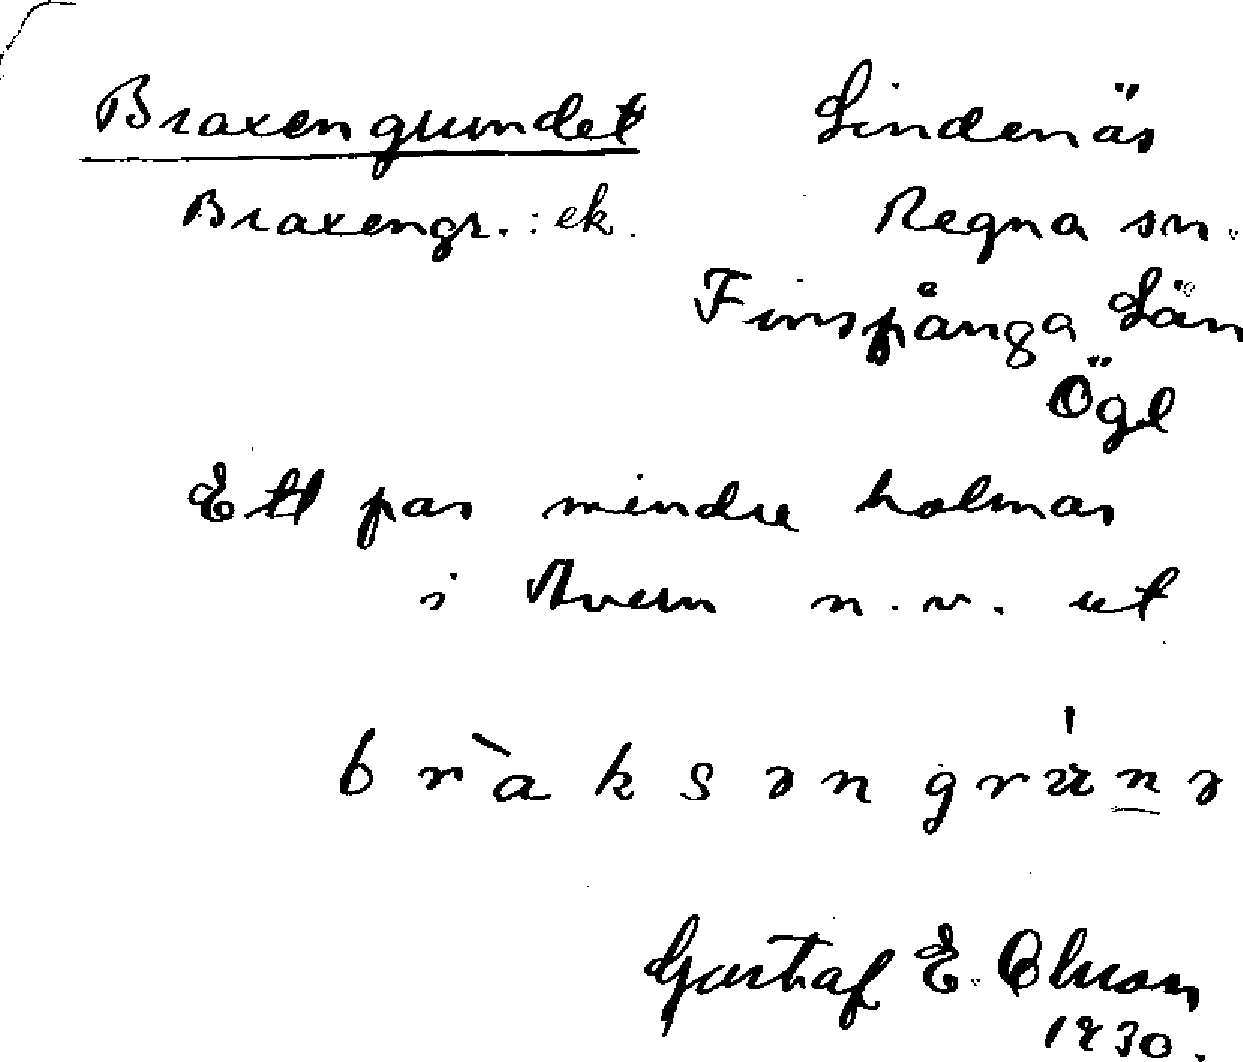 Braxengrundet Lindenäs
Braxengr. : ek. Regna sn.
Finspånga Län
Ögl
Ett par mindre holmar
i Avern n. v. ut
bràksəngrún̲ə
Gustaf E. Olsson
1930.